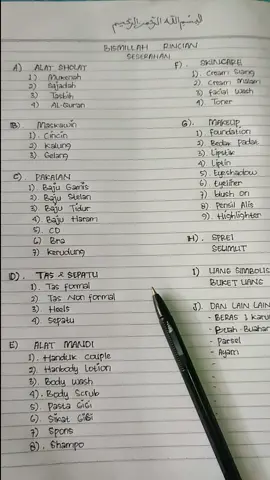 بسم الله الرحمن الرحيم
BISMILLAH RINCIAN
SESERAHAN
A) ALAT SHOLAT
1) Mukenah
2) Sajadah
3) Tasbih
4) AL-Quran
B) Maskawin
1). Cincin
2) Kalung
3) Gelang
C) PAKAIAN
1) Baju Gamis
2) Baju Stelan
3) Baju Tidur
4) Baju Haram
5). CD
6) Bra
7) Kerudung
D). TAS & SEPATU
1) Tas formal
2) Tas Non formal
3) Heels
4) Sepatu
E) ALAT MANDI
1). Handuk couple
2) Hanbody Lotion
3) Body Wash
4). Body Scrub
5). Pasta Gigi
6) Sikat Gigi
7) Spons
8). Shampo
F). SKINCARE
1) Cream Siang
2) Cream Malam
3) facial Wash
4) Toner
G). MAKEUP
1) foundation
2) Bedak Padat
3) Lipstik
4) Liptin
5) Eyeshadow
6) Eyeliner
7) blush on
8) Pensil Alis
9) Highlighter
H). SPREI
SELIMUT
I) UANG SIMBOLIS
BUKET UANG
J) DAN LAIN LAIN
- BERAS 1 Karu
- Buah-Buahan
- Parsel
- Ayam